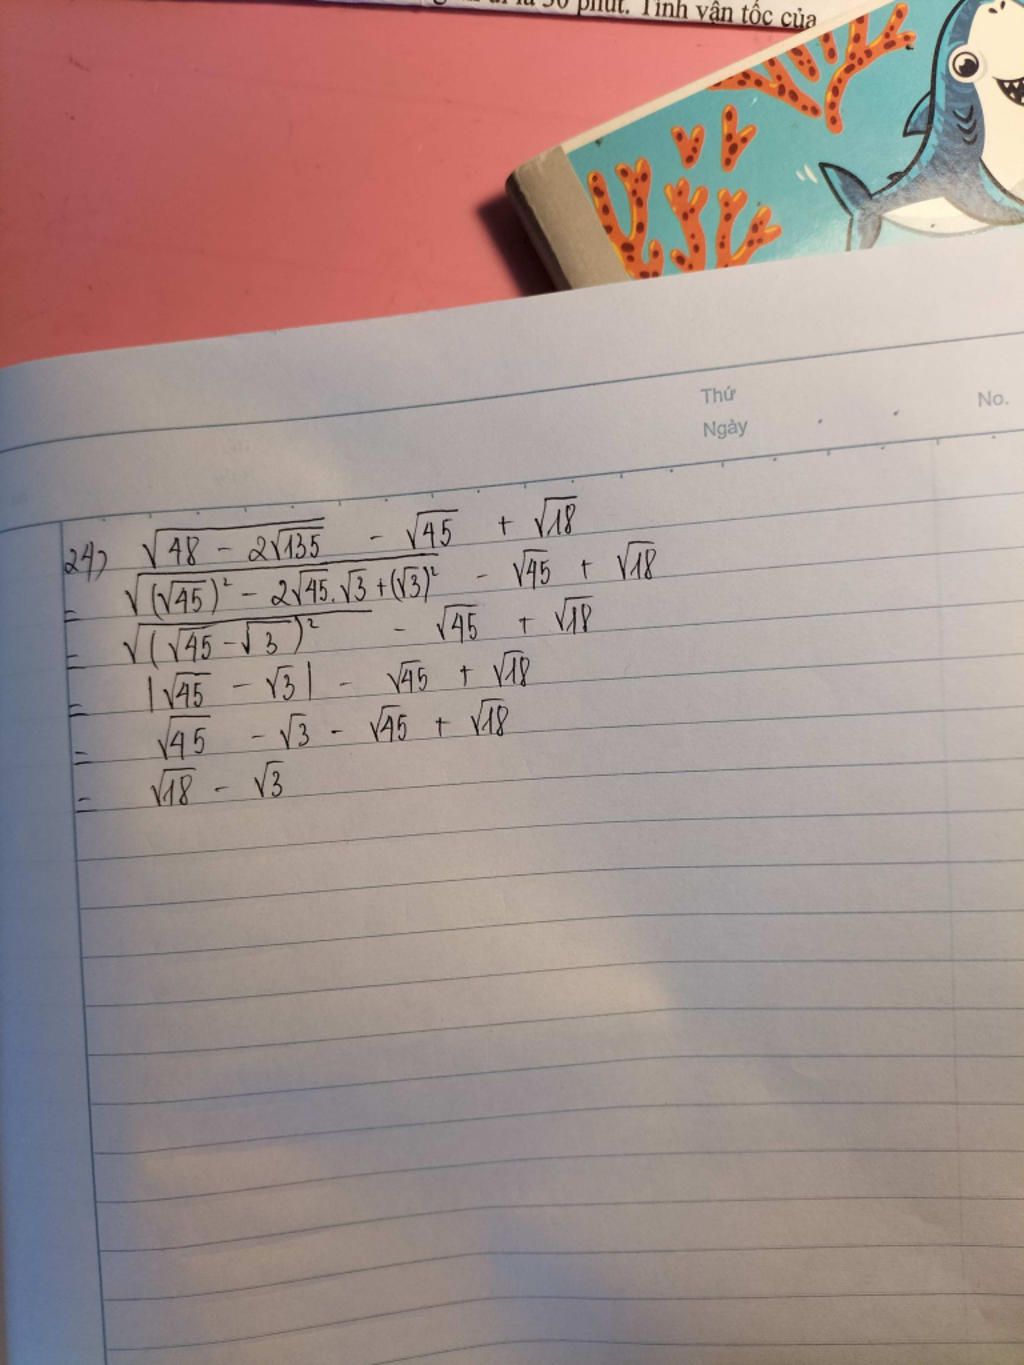 là 30 phút. Tính vận tốc của
Thứ
Ngày
No.
24) √(48 - 2√135) - √45 + √18
= √((√45)² - 2√45.√3 + (√3)²) - √45 + √18
= √((√45 - √3)²) - √45 + √18
= |√45 - √3| - √45 + √18
= √45 - √3 - √45 + √18
= √18 - √3